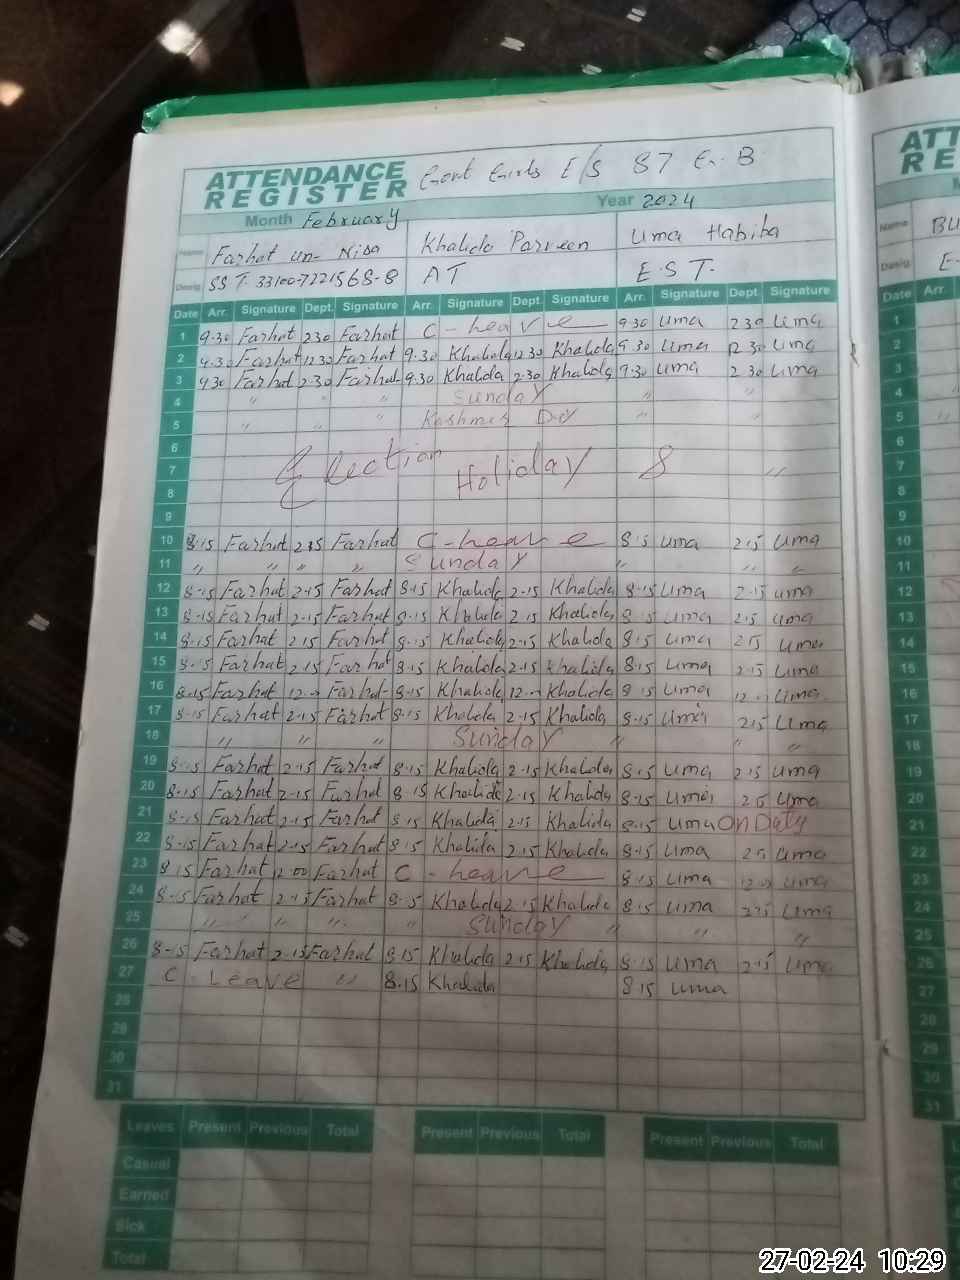 ATTENDANCE REGISTER Govt Girls E/S 87 E.B
Month February Year 2024
Name Farhat un-Nisa Khalida Parveen Uma Habiba
Desig. SST. AT E.S.T.
Date Arr. Signature Dept. Signature Arr. Signature Dept. Signature Arr. Signature Dept. Signature
1 9.30 Farhat 2.30 Farhat C-Leave 9.30 Uma 2.30 Uma
2 9.30 Farhat 12.30 Farhat 9.30 Khalida 12.30 Khalida 9.30 Uma 12.30 Uma
3 9.30 Farhat 2.30 Farhat 9.30 Khalida 2.30 Khalida 9.30 Uma 2.30 Uma
4 " " " Sunday " "
5 " " " Kashmir Day " "
6
7 Election Holiday 8 "
8
9
10 8.15 Farhat 2.15 Farhat C-Leave 8.15 Uma 2.15 Uma
11 " " " " Sunday " " "
12 8-15 Farhat 2-15 Farhat 8.15 Khalida 2-15 Khalida 8-15 Uma 2-15 Uma
13 8-15 Farhat 2-15 Farhat 8-15 Khalida 2.15 Khalida 8.15 Uma 2.15 Uma
14 8-15 Farhat 2.15 Farhat 8-15 Khalida 2-15 Khalida 8.15 Uma 2.15 Uma
15 8-15 Farhat 2.15 Farhat 8-15 Khalida 2.15 Khalida 8.15 Uma 2.15 Uma
16 8.15 Farhat 12 Farhat 8-15 Khalida 12 Khalida 8.15 Uma 12 Uma
17 8-15 Farhat 2-15 Farhat 8-15 Khalida 2-15 Khalida 8-15 Uma 2.15 Uma
18 " " " Sunday " " "
19 8-15 Farhat 2-15 Farhat 8-15 Khalida 2-15 Khalida 8.15 Uma 2.15 Uma
20 8-15 Farhat 2-15 Farhat 8.15 Khalida 2-15 Khalida 8-15 Uma 2.15 Uma
21 8-15 Farhat 2-15 Farhat 8.15 Khalida 2.15 Khalida 8.15 Uma On Duty
22 8-15 Farhat 2-15 Farhat 8.15 Khalida 2.15 Khalida 8.15 Uma 2.15 Uma
23 8.15 Farhat 12.00 Farhat C-Leave 8.15 Uma 12.00 Uma
24 8-15 Farhat 2-15 Farhat 8.15 Khalida 2.15 Khalida 8.15 Uma 2.15 Uma
25 " " " Sunday " " "
26 8-15 Farhat 2-15 Farhat 8.15 Khalida 2.15 Khalida 8.15 Uma 2.15 Uma
27 C-Leave " 8.15 Khalida 8.15 Uma
28
29
30
31
Leaves Present Previous Total Present Previous Total Present Previous Total
Casual
Earned
Sick
Total
ATT
RE
Name BU
Desig. E-
Date Arr.
1
2
3
4
5
6
7
8
9
10
11
12
13
14
15
16
17
18
19
20
21
22
23
24
25
26
27
28
29
30
31
27-02-24 10:29